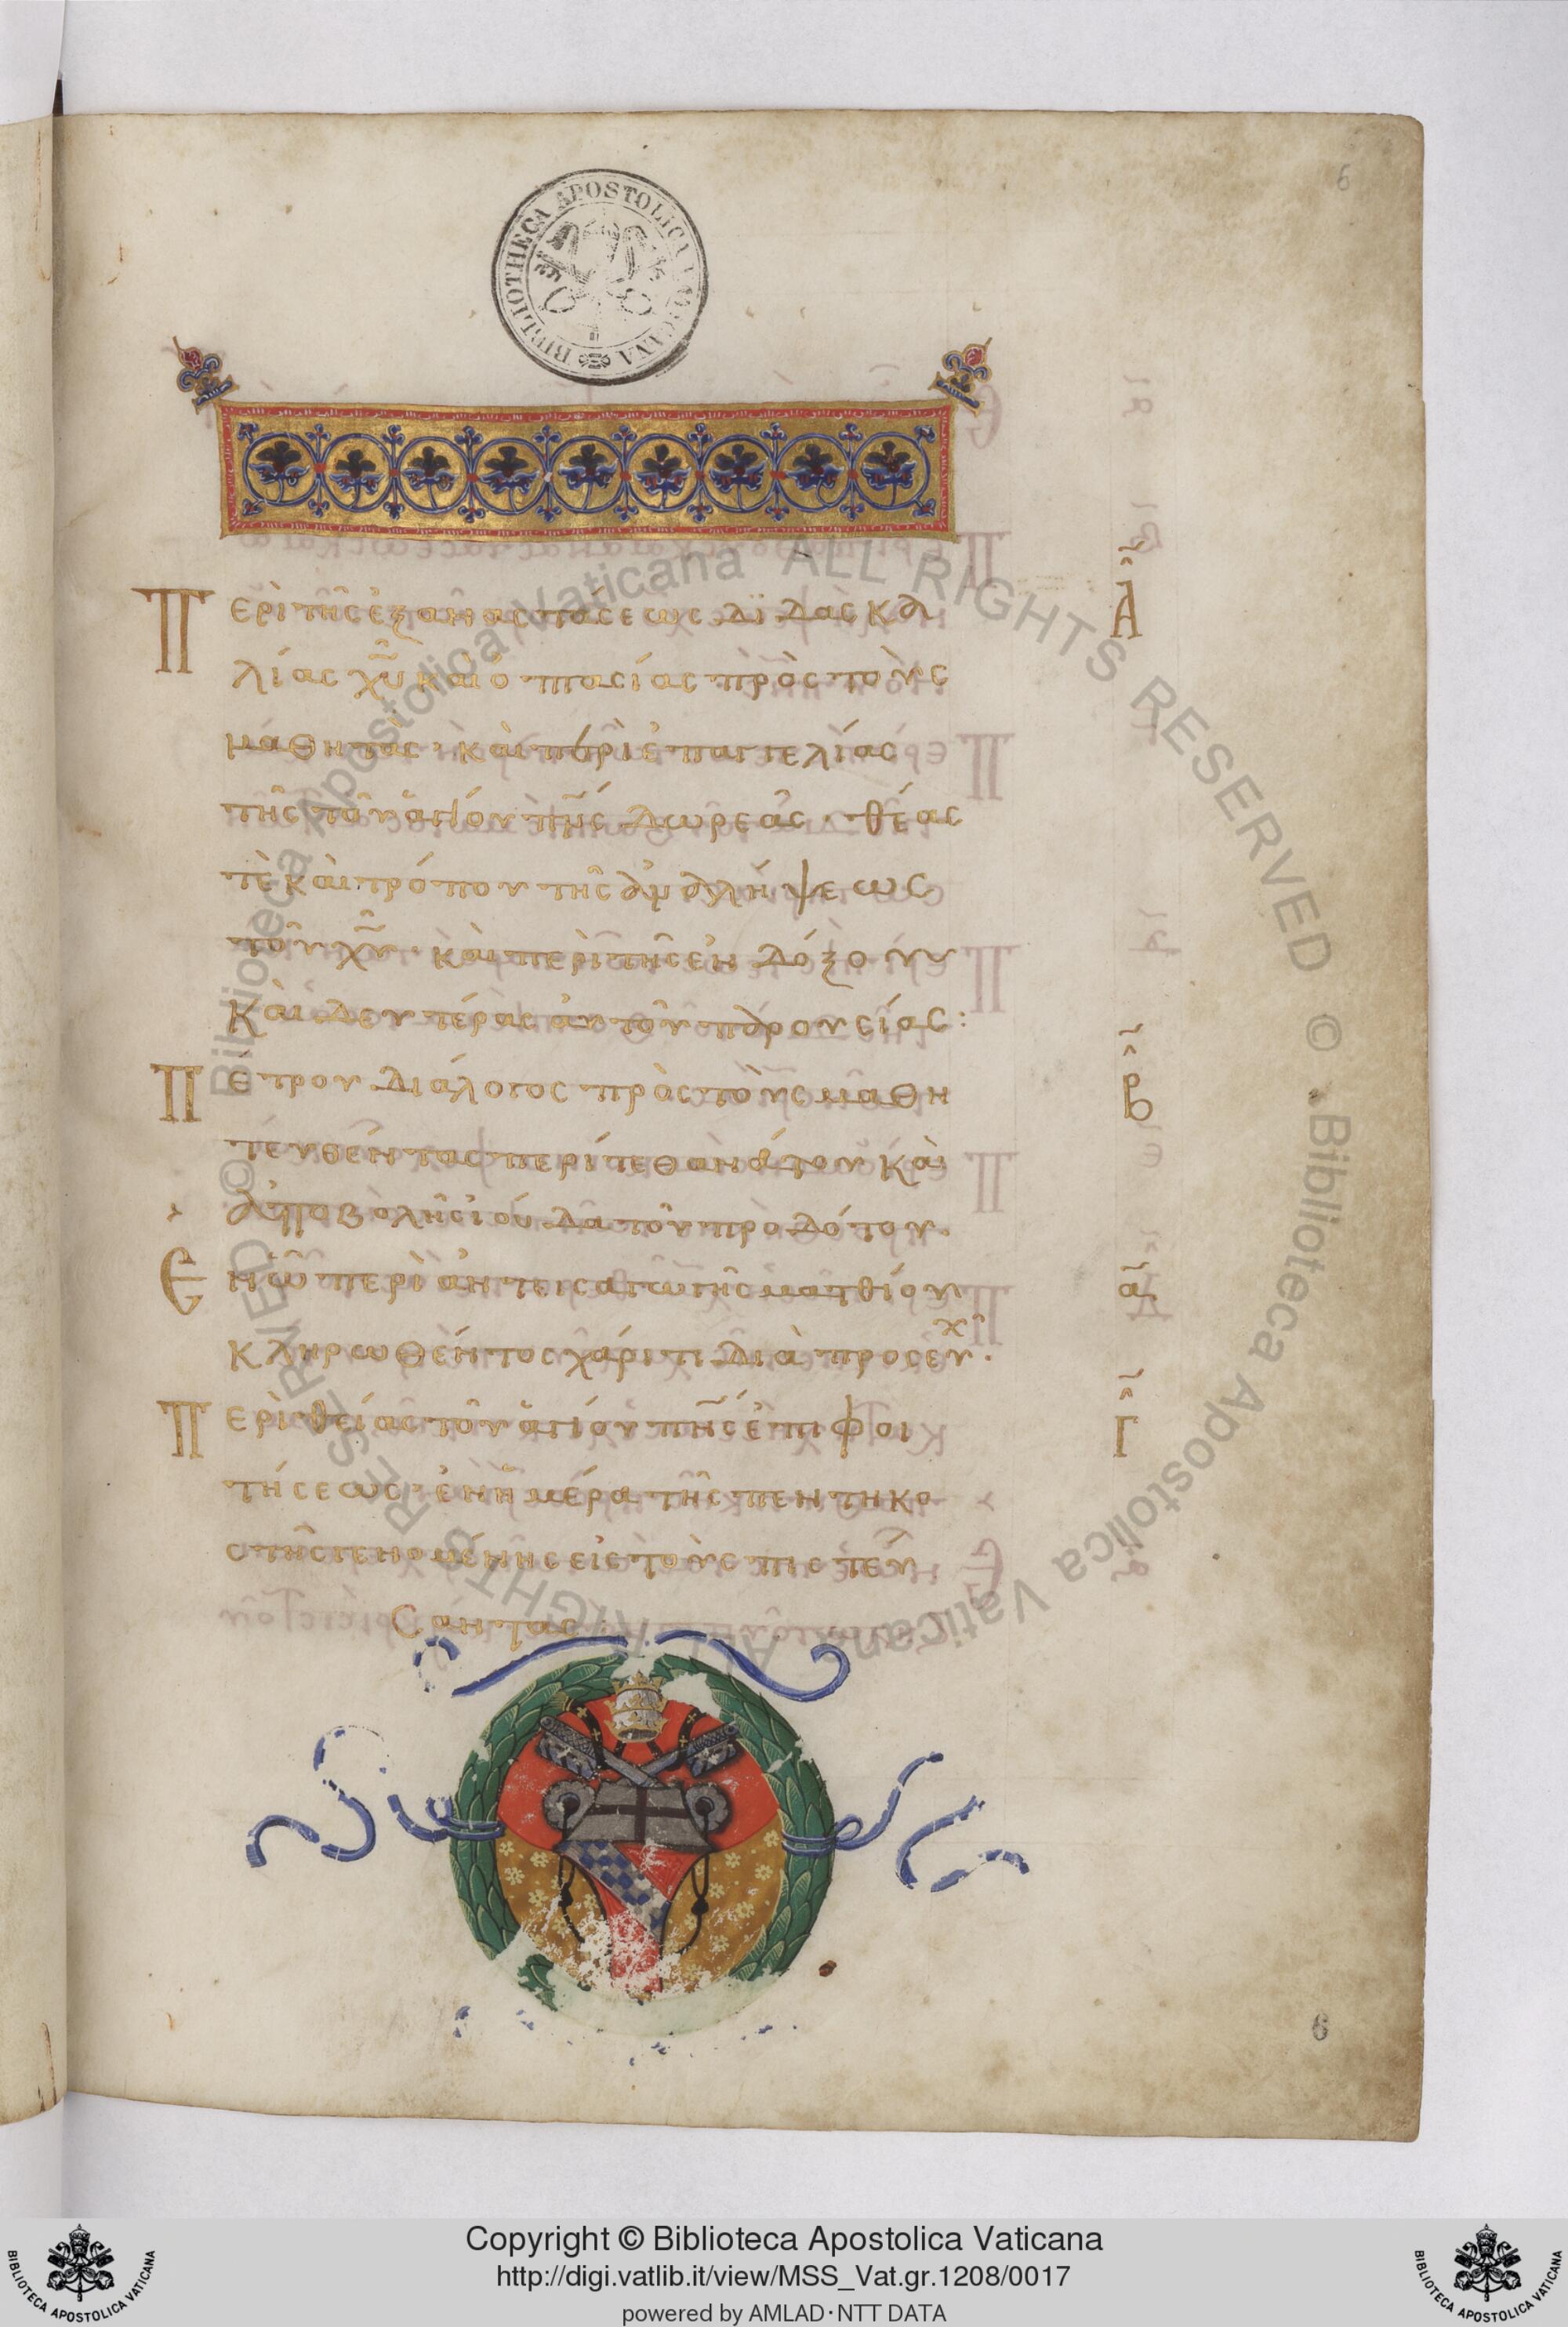 6
BIBLIOTHECA APOSTOLICA VATICANA
Περὶ τῆς ἐξ ἀναστάσεως διδασκα Α
λίας χυ καὶ ὀπτασίας πρὸς τοὺς
μαθητάς· καὶ περὶ ἐπαγγελίας
τῆς τοῦ ἁγίου πνς δωρεᾶς· θέας
τὲ καὶ τρόπου τῆς ἀναλήψεως
τοῦ χυ· καὶ περὶ τῆς ἐνδόξου
καὶ δευτέρας αὐτοῦ παρουσίας:
Πέτρου διάλογος πρὸς τοὺς μαθη Β
τευθέντας περί τε θανάτου καὶ
ἀποβολῆς ἰούδα τοῦ προδότου.
Ἐν ᾧ περὶ ἀντεισαγωγῆς ματθίου α
κληρωθέντος χάριτι διὰ προσευχ.
Περὶ θείας τοῦ ἁγίου πνς ἐπιφοι Γ
τήσεως· ἐν ἡμέρα τῆς πεντηκο
στῆς γενομένης εἰς τοὺς πιστεύ
σαντας:
6
© Biblioteca Apostolica Vaticana ALL RIGHTS RESERVED © Biblioteca Apostolica Vaticana ALL RIGHTS RESERVED
Copyright © Biblioteca Apostolica Vaticana
http://digi.vatlib.it/view/MSS_Vat.gr.1208/0017
powered by AMLAD·NTT DATA
BIBLIOTECA APOSTOLICA VATICANA
BIBLIOTECA APOSTOLICA VATICANA